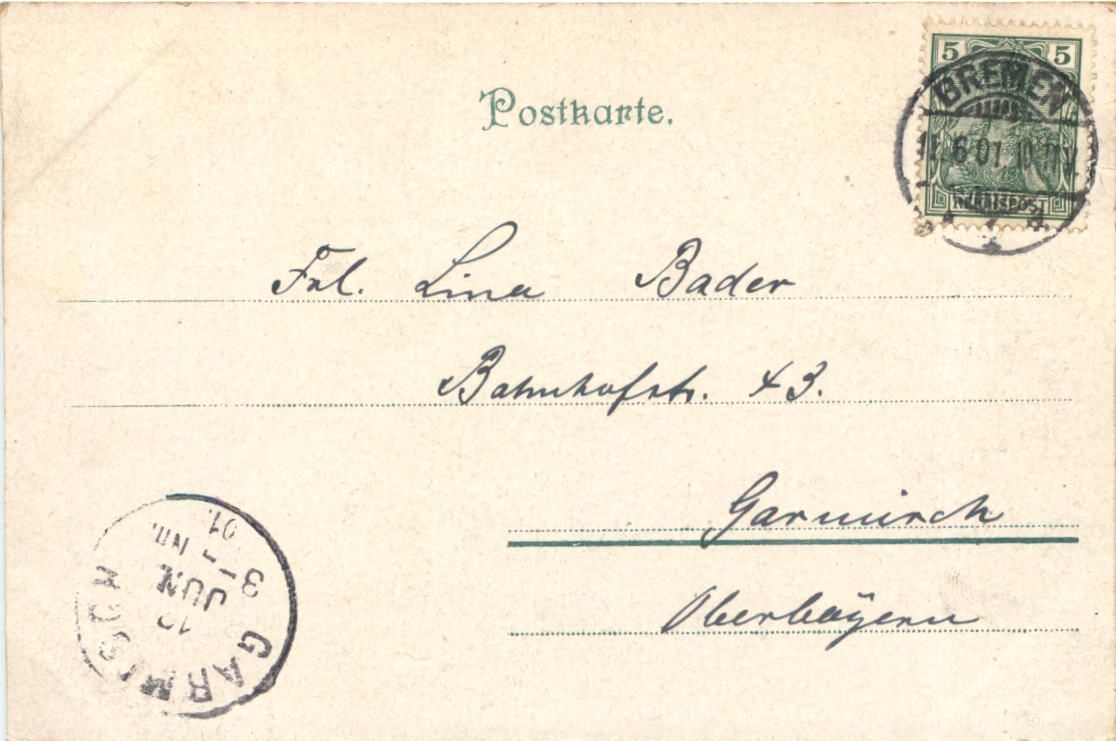 Postkarte.
5 5
BREMEN
11.6.01.10
REICHSPOST
Frl. Lina Bader
Bahnhofstr. 43.
Garmisch
Oberbayern
GARMISCH
JUN
01.